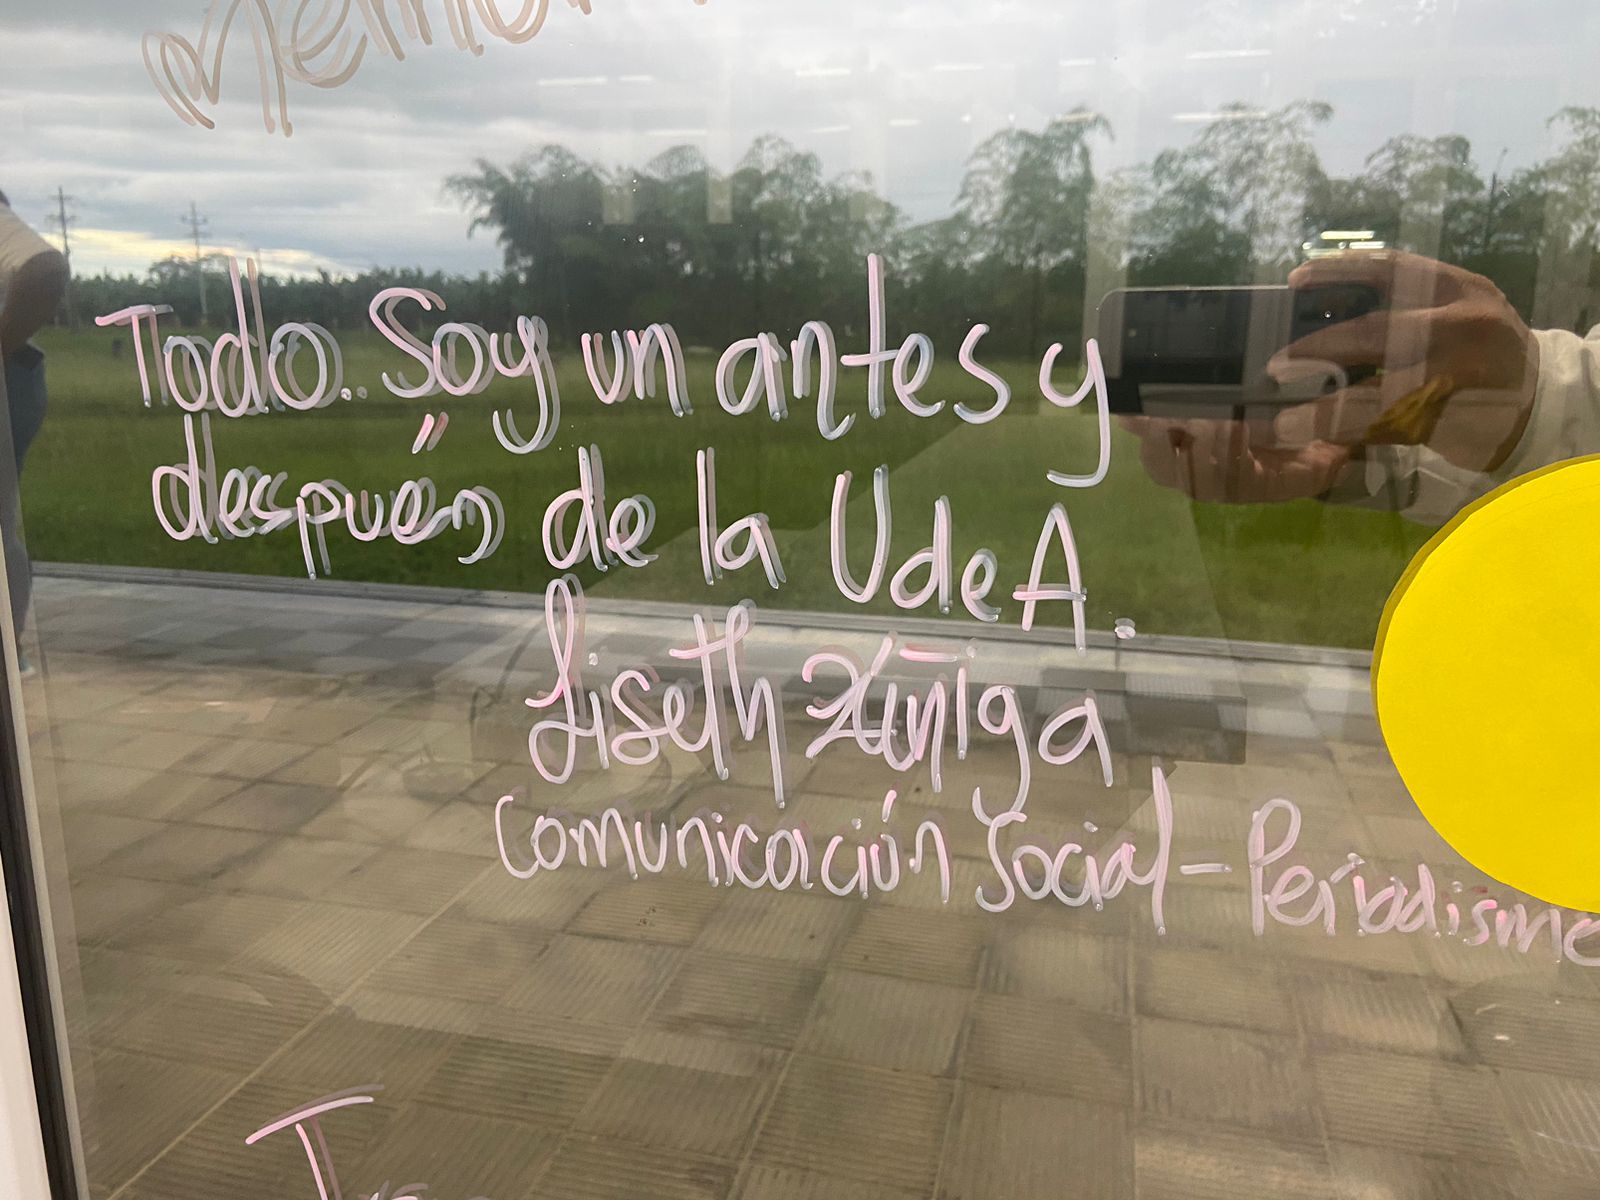 Todo.. Soy un antes y
después de la UdeA.
Liseth Zúñiga
Comunicación Social - Periodismo